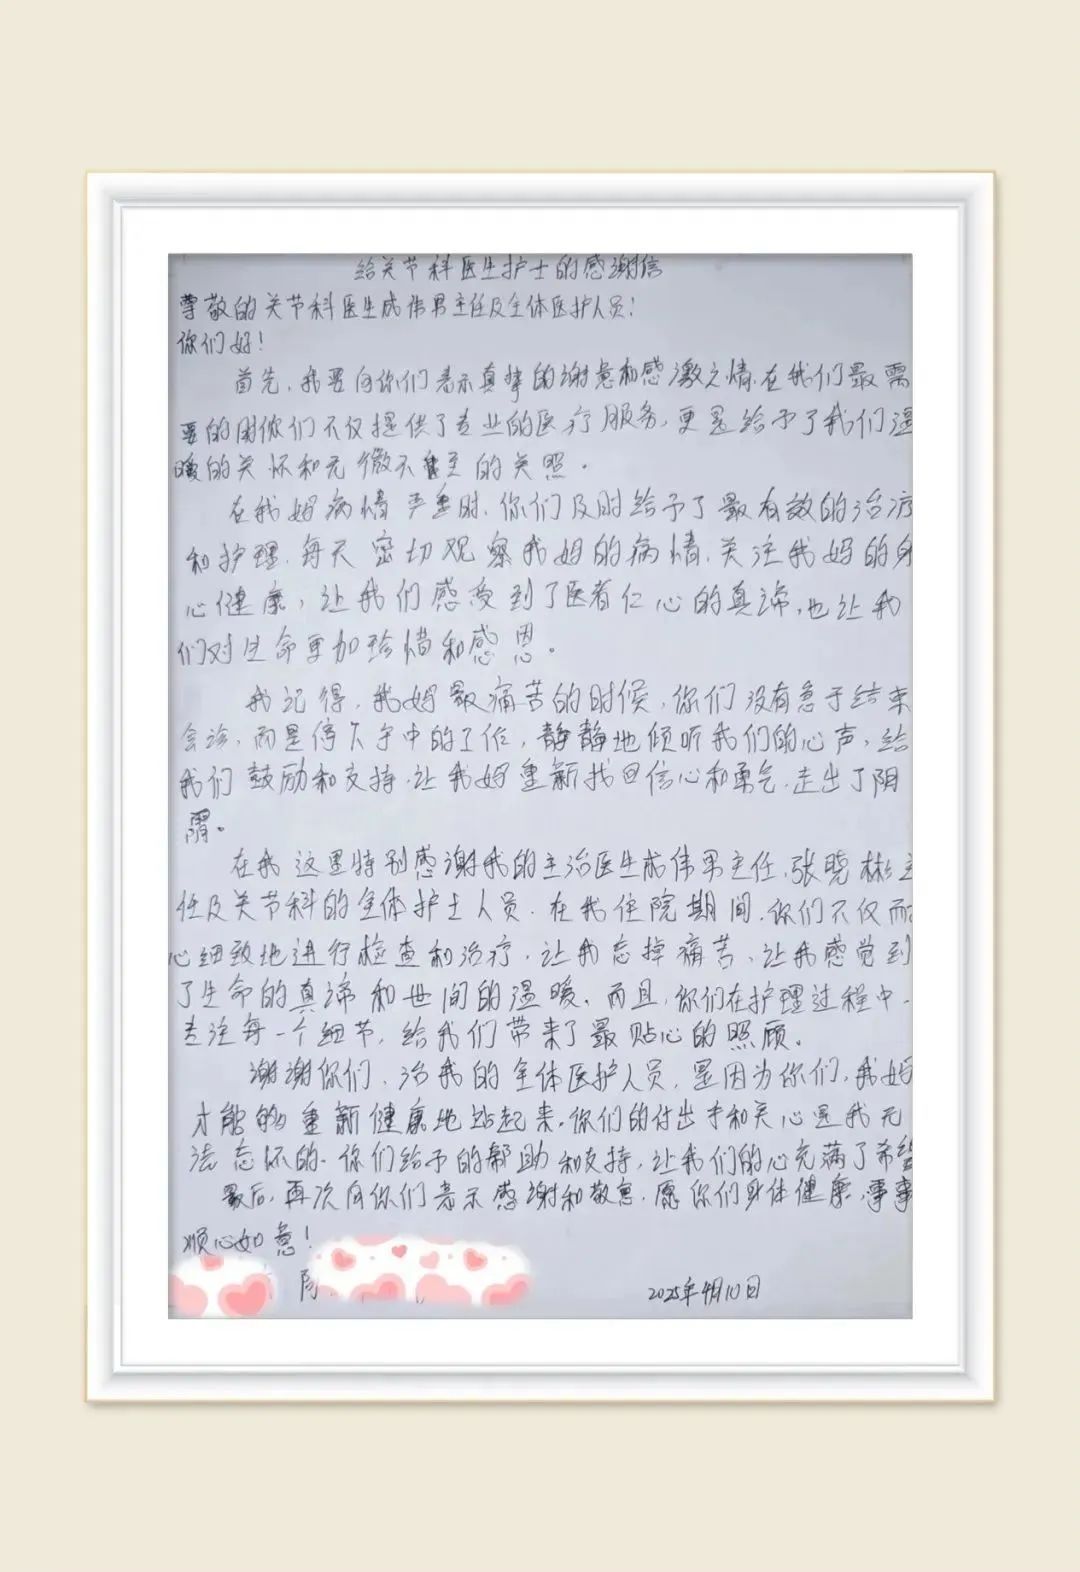 给关节科医生护士的感谢信
尊敬的关节科医生成伟男主任及全体医护人员!
你们好!
首先,我要向你们表示真挚的谢意和感激之情.在我们最需
要的时你们不仅提供了专业的医疗服务,更是给予了我们温
暖的关怀和无微不至的关照。
在我妈病情严重时.你们及时给予了最有效的治疗
和护理.每天密切观察我妈的病情.关注我妈的身
心健康,让我们感受到了医者仁心的真谛,也让我
们对生命更加珍惜和感恩。
我记得,我妈最痛苦的时候,你们没有急于结束
会诊,而是停下手中的工作,静静地倾听我们的心声,给
我们鼓励和支持.让我妈重新找回信心和勇气.走出了阴
霜。
在我这里特别感谢我的主治医生成伟男主任,张晓彬主
任及关节科的全体护士人员.在我住院期间.你们不仅耐
心细致地进行检查和治疗,让我忘掉痛苦,让我感觉到
了生命的真谛和世间的温暖.而且,你们在护理过程中.
专注每一个细节,给我们带来了最贴心的照顾。
谢谢你们,治我的全体医护人员,是因为你们,我妈
才能的重新健康地站起来.你们的付出手和关心是我无
法忘怀的.你们给予的帮助和支持,让我们的心充满了希望
最后,再次向你们表示感谢和敬意.愿你们身体健康,事事
顺心如意!
2025年4月10日